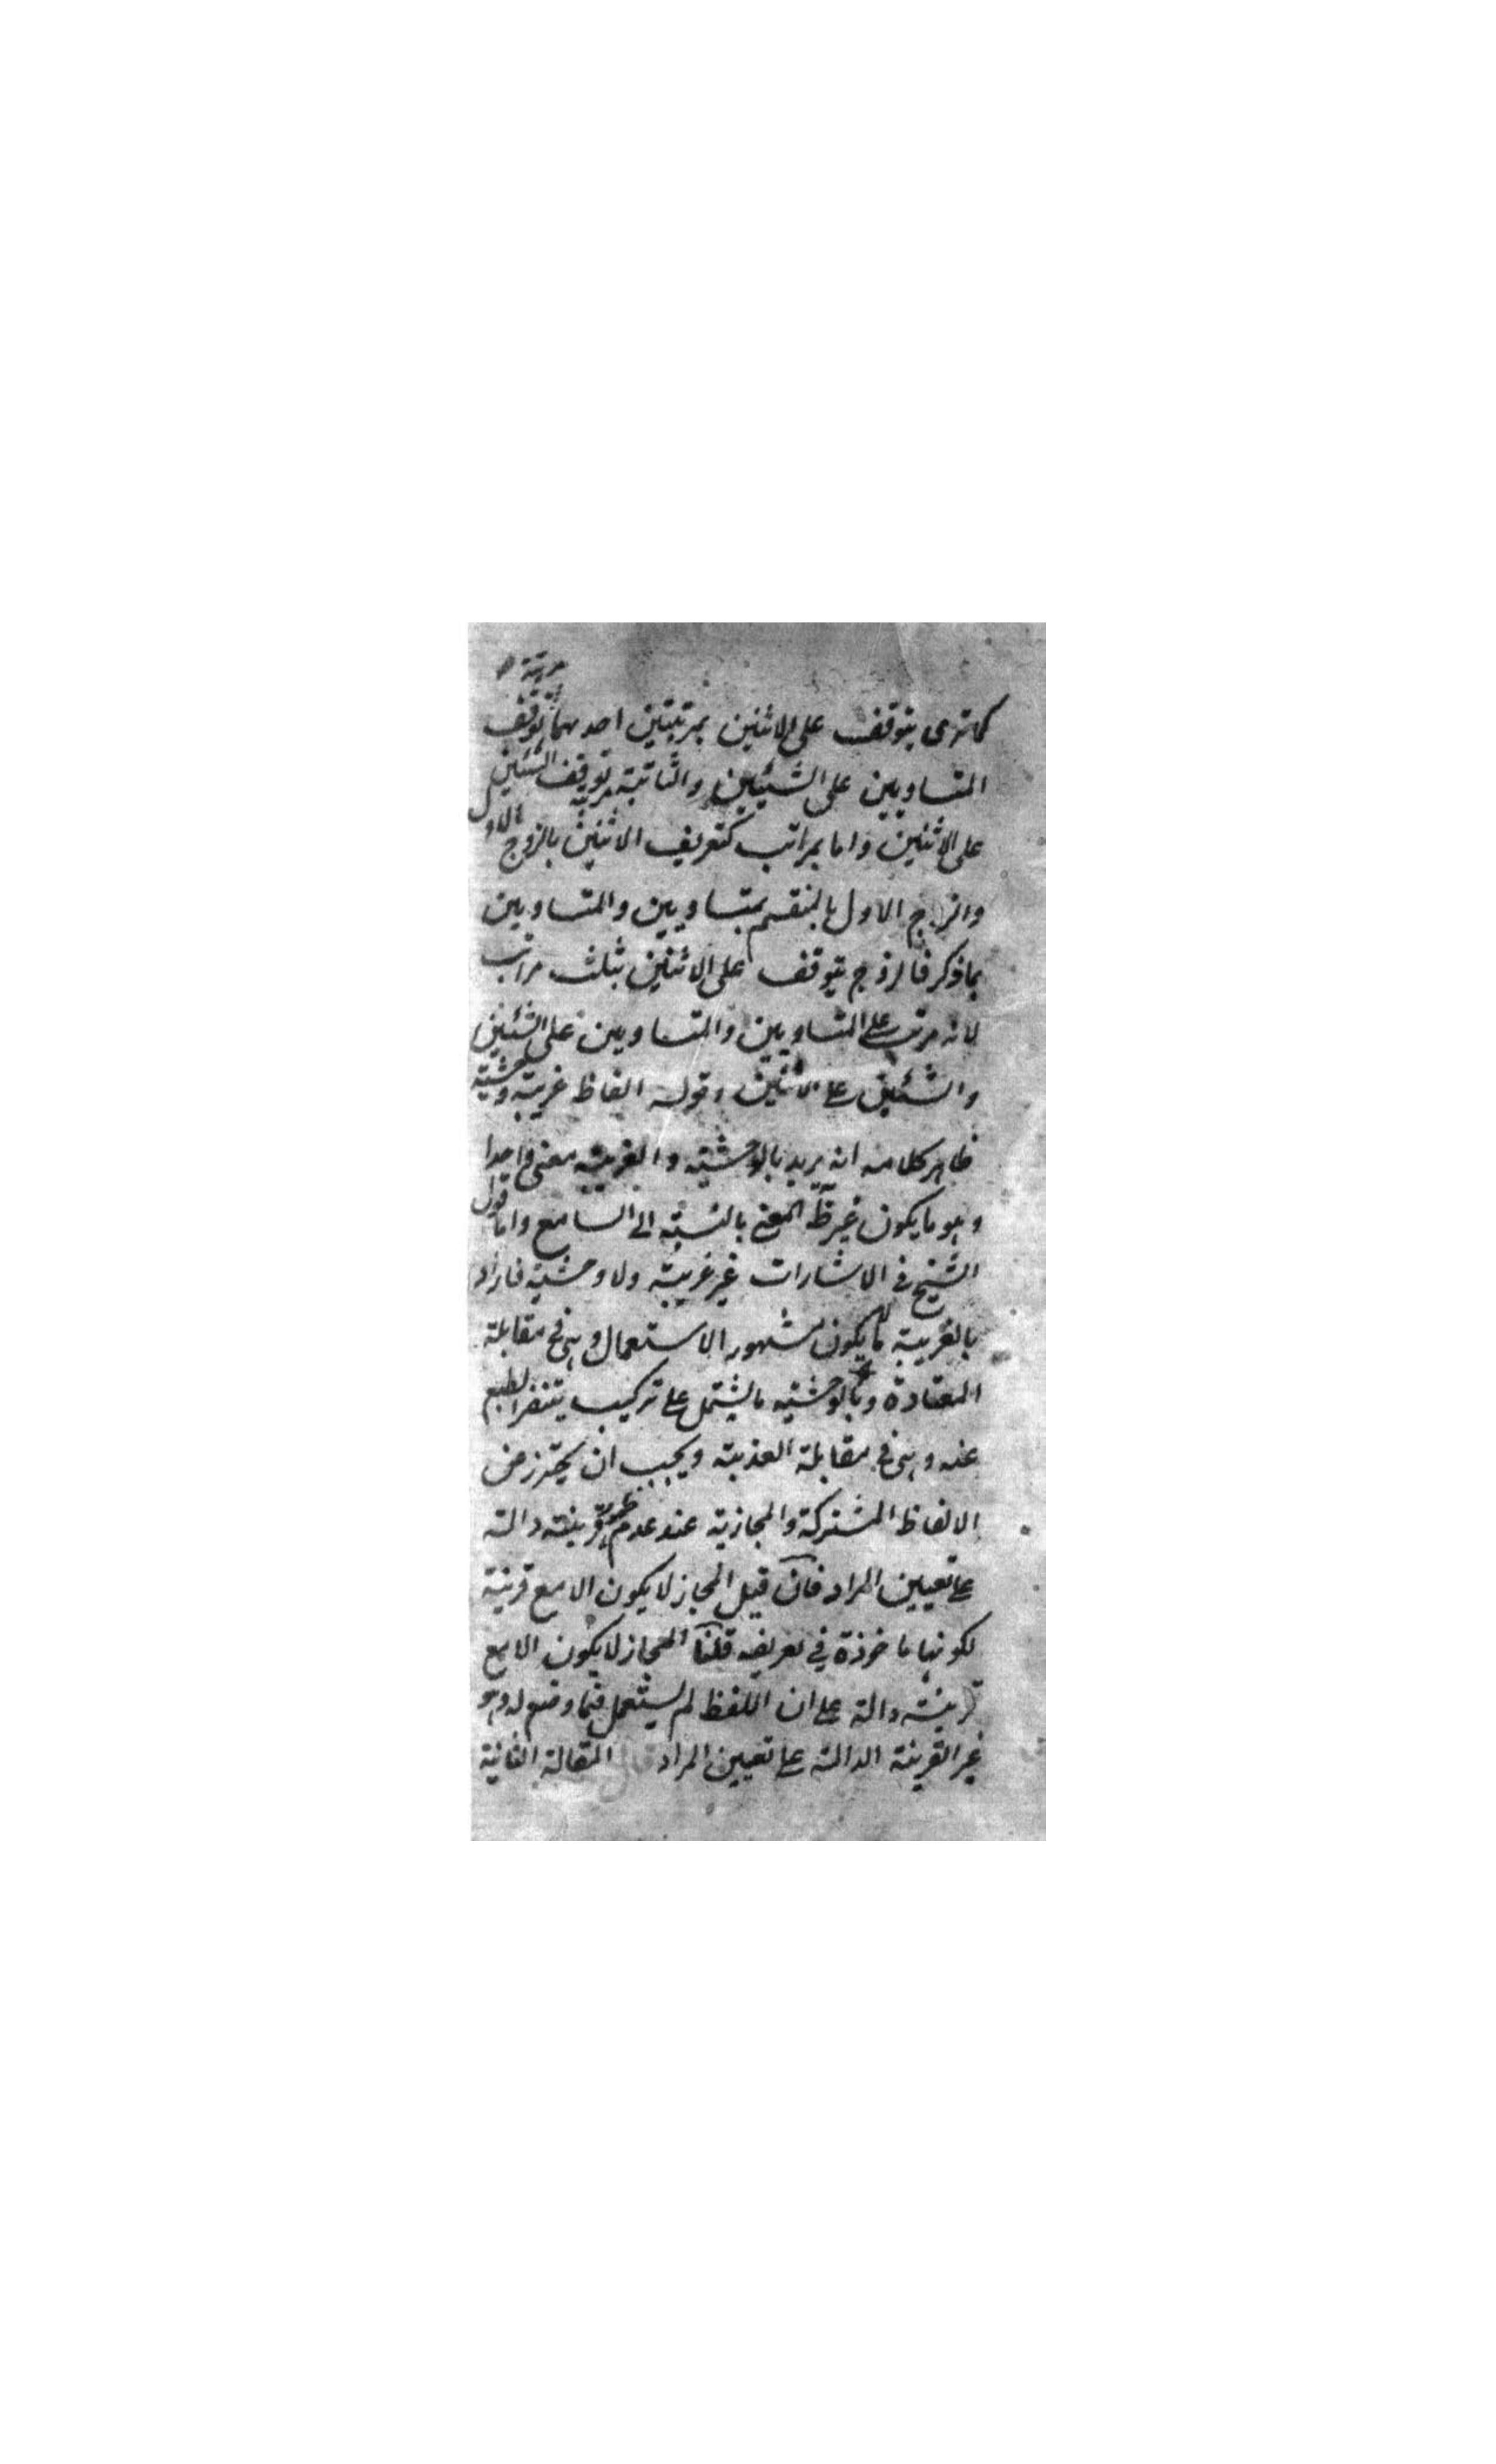 مرتبة
كما ترى يتوقف على الاثنين بمرتبتين احدهما توقف
المتساويين على الشيئين والثانية مرتبة توقف الشيئين
على الاثنين واما بمراتب كتعريف الاثنين بالزوج الاول
والزوج الاول بالمنقسم بمتساويين والمتساويين
بما ذكر فالزوج يتوقف على الاثنين بثلث مراتب
لانه مرتب على المتساويين والمتساويين على الشيئين
والشيئين على الاثنين قوله الفاظ غريبة وحشية
ظاهر كلامه انه يريد بالوحشية والغريبة معنى واحدا
وهو ما يكون غير ظ المعنى بالنسبة الى السامع واما قول
الشيخ في الاشارات غير غريبة ولا وحشية فاراد
بالغريبة ما لا يكون مشهور الاستعمال وهي في مقابلة
المعتادة وبالوحشية ما يشتمل على تركيب يتنفر الطبع
عنه وهي في مقابلة العذبة ويجب ان يحترز عن
الالفاظ المشتركة والمجازية عند عدم ظهور قرينة دالة
على تعيين المراد فان قيل المجاز لا يكون الا مع قرينة
لكونها ماخوذة في تعريفه قلنا المجاز لا يكون الا مع
قرينة دالة على ان اللفظ لم يستعمل فيما وضع له وهو
غير القرينة الدالة على تعيين المراد قال المقالة الثانية